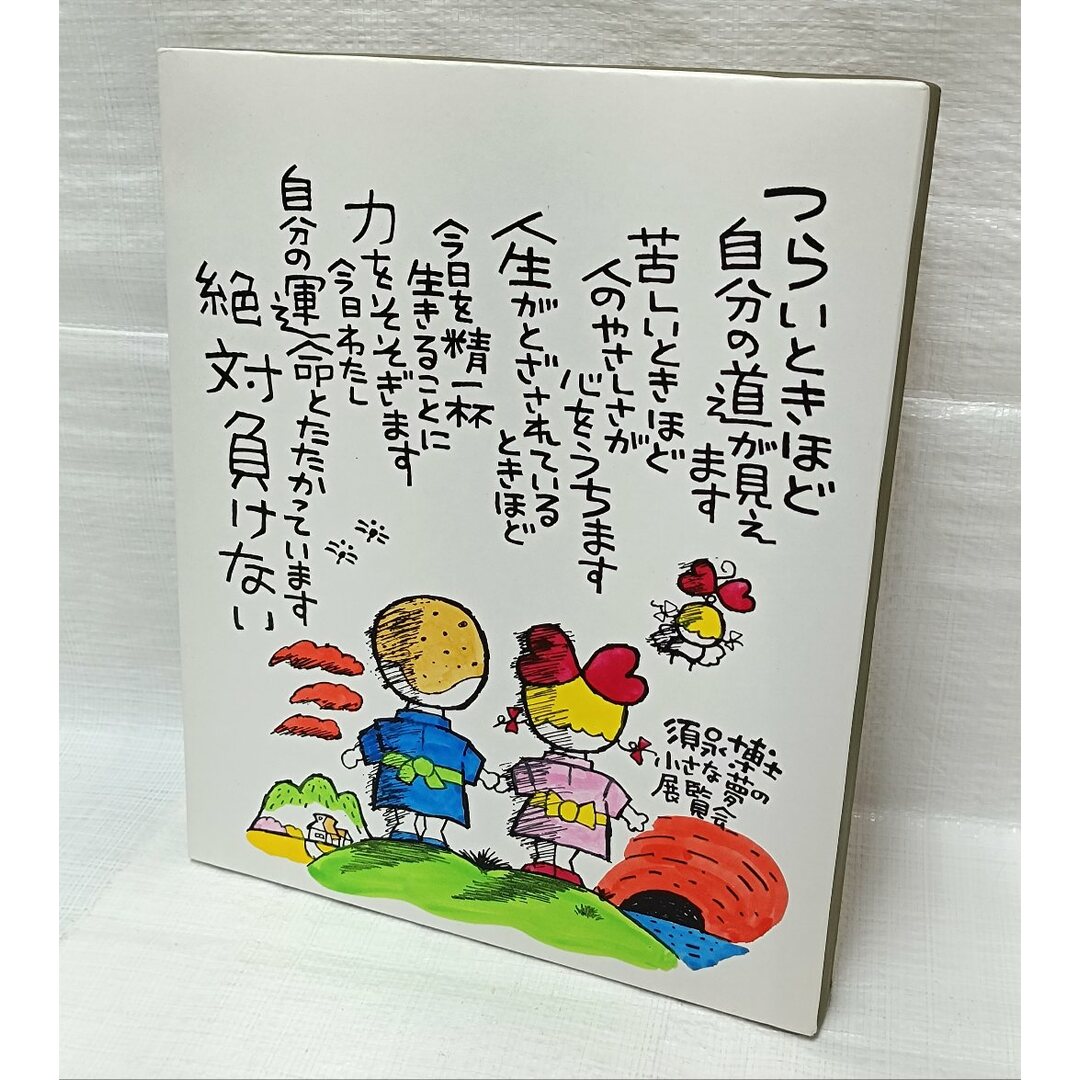 つらいときほど
自分の道が見え
ます
苦しいときほど
人のやさしさが
心をうちます
人生がとざされている
ときほど
今日を精一杯
生きることに
力をそそぎます
今日わたし
自分の運命とたたかっています
絶対負けない
須永博士
小さな夢の
展覧会